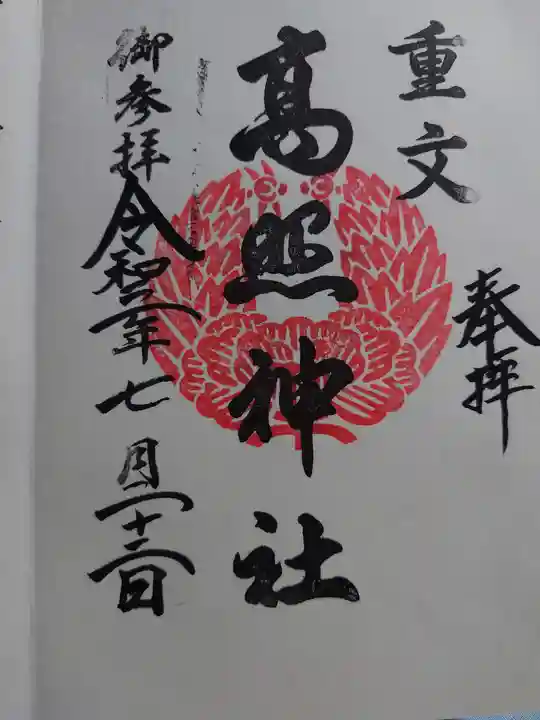 奉拝
重文
髙照神社
御参拝令和二年七月二十二日